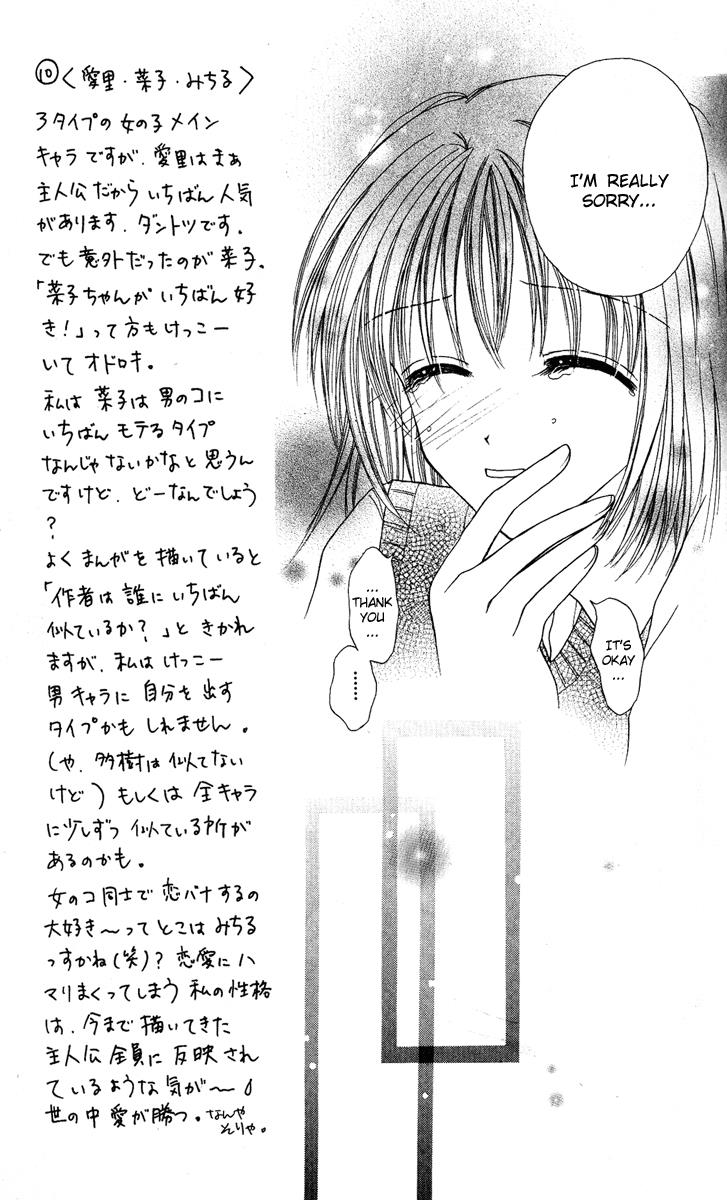 ⑩〈愛里・菜子・みちる〉
3タイプの女の子メイン
キャラですが、愛里はまぁ
主人公だからいちばん人気
があります。ダントツです。
でも意外だったのが菜子。
「菜子ちゃんがいちばん好
き!」って方もけっこー
いてオドロキ。
私は菜子は男のコに
いちばんモテるタイプ
なんじゃないかなと思うん
ですけど、どーなんでしょう
?
よくまんがを描いていると
「作者は誰にいちばん
似ているか?」ときかれ
ますが、私はけっこー
男キャラに自分を出す
タイプかもしれません。
(や、多樹は似てない
けど)もしくは全キャラ
に少しずつ似ている所が
あるのかも。
女のコ同士で恋バナするの
大好き〜ってとこはみちる
っすかね(笑)?恋愛にハ
マりまくってしまう私の性格
は、今まで描いてきた
主人公全員に反映され
ているような気が〜
世の中愛が勝つ。なんや
そりゃ。
I'M REALLY
SORRY...
...
THANK
YOU
...
IT'S
OKAY
...
......